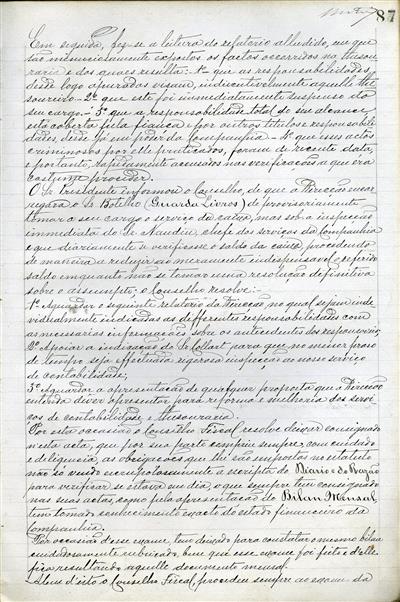 87
Em seguida, fez-se a leitura do relatorio alludido, em que
são minuciosamente expostos os factos occorridos na thesou
raria e dos quaes resulta: 1º que as responsabilidades
desde logo apuradas visam, indiscutivelmente aquelle the
soureiro - 2º que este foi immediatamente suspenso do
seu cargo - 3º que a responsabilidade total do seu alcance
está coberta pela fiança e por outros titulos e responsabili
dades, desde já em poder da Companhia - 4º que esses actos
criminosos por elle praticados, foram de recente data,
e portanto, rapidamente accusados nas verificações a que era
costume proceder.
O Sr. Presidente informou o Conselho, de que a Direcção encar
regára o Sr. Botelho (Guarda Livros) de provisoriamente
tomar a seu cargo o serviço da caixa, mas sob a inspecção
immediata do Sr. Naudin, chefe dos serviços da Companhia
e que diariamente verificasse o saldo da caixa, procedendo
de maneira a reduzir ao meramente indispensavel o referido
saldo emquanto não se tomar uma resolução definitiva
sobre o assumpto; e o Conselho resolve:-
1º Aguardar o seguinte relatorio da Direcção no qual sejam inde
vidualmente indicadas as differentes responsabilidades com
as necessarias informações sobre os antecedentes dos responsaveis;
2º Apoiar a indicação do Sr. para que no menor praso
de tempo seja effectuada rigorosa inspecção ao nosso serviço
de contabilidade;
3º Aguardar a apresentação de qualquer proposta que a Direcção
entenda dever apresentar para reforma e melhoria dos servi
ços de contabilidade e thesouraria.
Por esta occasião o Conselho Fiscal resolve deixar consignado
n'esta acta, que por sua parte cumprio sempre, com cuidado
e deligencia, as obrigações que lhe são impostas no estatuto
não só vendo escrupulosamente a escripta do Diario e do Razão
para verificar se estava em dia, o que sempre tem consignado
nas suas actas, como pela apresentação do Bilan Mensal
tem tomado conhecimento exacto do estado financeiro da
Companhia.
Por occasião d'esse exame, tem deixado para constatar o mesmo bilan
cuidadosamente rubricado, bem que esse exame foi feito e d'elle
fica resultando aquelle documento mensal.
Alem d'isto o Conselho Fiscal, procedeu sempre ao exame da